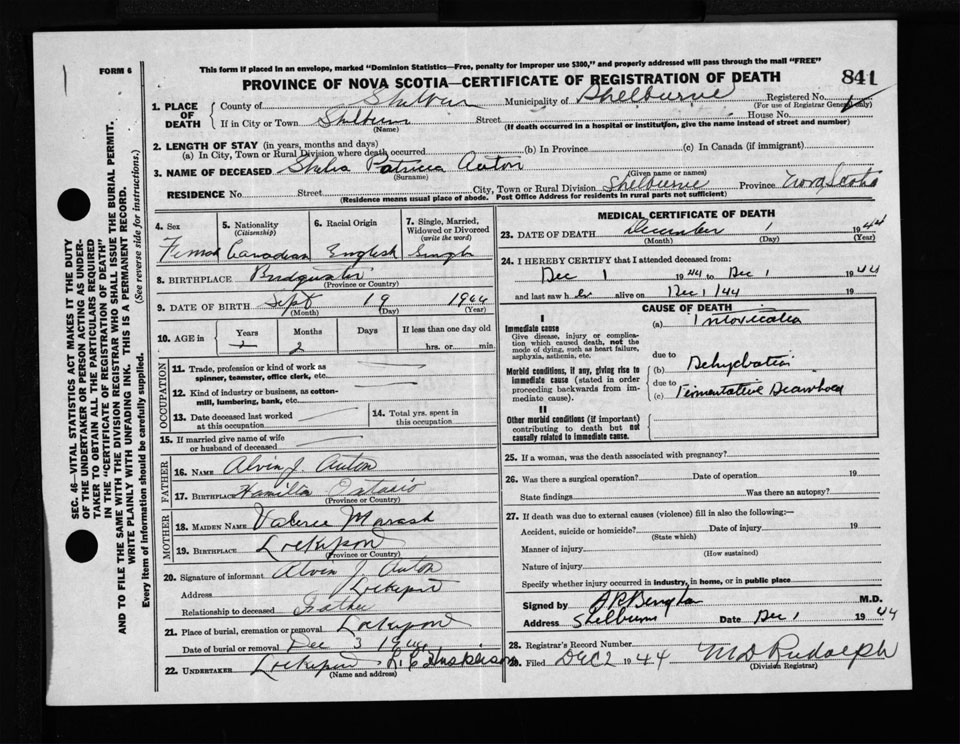 FORM 6
This form if placed in an envelope, marked "Dominion Statistics—Free, penalty for improper use $300," and properly addressed will pass through the mail "FREE"
PROVINCE OF NOVA SCOTIA—CERTIFICATE OF REGISTRATION OF DEATH
841
1. PLACE OF DEATH
County of Municipality of Shelburne Registered No.
(For use of Registrar General only)
If in City or Town Street House No.
(Name) (If death occurred in a hospital or institution, give the name instead of street and number)
2. LENGTH OF STAY (in years, months and days)
(a) In City, Town or Rural Division where death occurred (b) In Province (c) In Canada (if immigrant)
3. NAME OF DECEASED Patricia Auton
(Surname) (Given name or names)
RESIDENCE No Street City, Town or Rural Division Shelburne Province Nova Scotia
(Residence means usual place of abode. Post Office Address for residents in rural parts not sufficient)
4. Sex 5. Nationality (Citizenship) 6. Racial Origin 7. Single, Married, Widowed or Divorced (write the word)
Canadian English Single
8. BIRTHPLACE
(Province or Country)
9. DATE OF BIRTH Sept 19 1944
(Month) (Day) (Year)
10. AGE in Years Months Days If less than one day old
2 hrs. or min.
OCCUPATION
11. Trade, profession or kind of work as spinner, teamster, office clerk, etc.
12. Kind of industry or business, as cotton-mill, lumbering, bank, etc.
13. Date deceased last worked at this occupation 14. Total yrs. spent in this occupation
15. If married give name of wife or husband of deceased
FATHER
16. NAME Alvin J. Auton
17. BIRTHPLACE Hamilton Ontario
(Province or Country)
MOTHER
18. MAIDEN NAME
19. BIRTHPLACE Lockeport
(Province or Country)
20. Signature of informant Alvin J. Auton
Address Lockeport
Relationship to deceased Father
21. Place of burial, cremation or removal Lockeport
Date of burial or removal Dec 3 1944
22. UNDERTAKER Lockeport
(Name and address)
MEDICAL CERTIFICATE OF DEATH
23. DATE OF DEATH December 1 1944
(Month) (Day) (Year)
24. I HEREBY CERTIFY that I attended deceased from:
Dec 1 1944 to Dec 1 1944
and last saw h er alive on Dec 1/44 19
CAUSE OF DEATH
I
Immediate cause
Give disease, injury or complication which caused death, not the mode of dying, such as heart failure, asphyxia, asthenia, etc.
(a) Intoxication
due to
Morbid conditions, if any, giving rise to immediate cause (stated in order proceeding backwards from immediate cause).
(b) Dehydration
due to
(c) Fermentative Diarrhoea
II
Other morbid conditions (if important) contributing to death but not causally related to immediate cause.
25. If a woman, was the death associated with pregnancy?
26. Was there a surgical operation? Date of operation 19
State findings Was there an autopsy?
27. If death was due to external causes (violence) fill in also the following:—
Accident, suicide or homicide? Date of injury 19
(State which)
Manner of injury
(How sustained)
Nature of injury
Specify whether injury occurred in industry, in home, or in public place
Signed by M.D.
Address Shelburne Date Dec 1 1944
28. Registrar's Record Number
29. Filed DEC 2 1944 M D Rudolph
(Division Registrar)
SEC. 46—VITAL STATISTICS ACT MAKES IT THE DUTY
OF THE UNDERTAKER OR PERSON ACTING AS UNDERTAKER
TO OBTAIN ALL THE PARTICULARS REQUIRED
IN THE "CERTIFICATE OF REGISTRATION OF DEATH"
AND TO FILE THE SAME WITH THE DIVISION REGISTRAR WHO SHALL ISSUE THE BURIAL PERMIT.
WRITE PLAINLY WITH UNFADING INK. THIS IS A PERMANENT RECORD.
Every item of information should be carefully supplied. (See reverse side for instructions.)